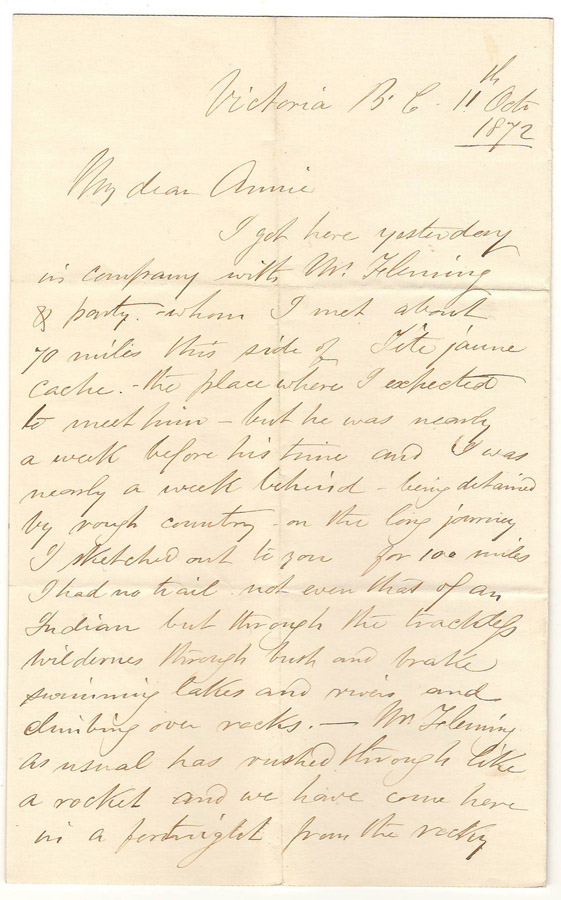 Victoria B. C. 11th Octr
1872
My dear Annie
I got here yesterday
in company with Mr. Fleming
& party. - whom I met about
70 miles this side of Tête jaune
cache. - the place where I expected
to meet him - but he was nearly
a week before his time and I was
nearly a week behind - being detained
by rough country - on the long journey
I sketched out to you for 100 miles
I had no trail not even that of an
Indian but through the trackless
wildernes through bush and brake
swimming lakes and rivers and
climbing over rocks. — Mr. Fleming
as usual has rushed through like
a rocket and we have come here
in a fortnight from the rocky